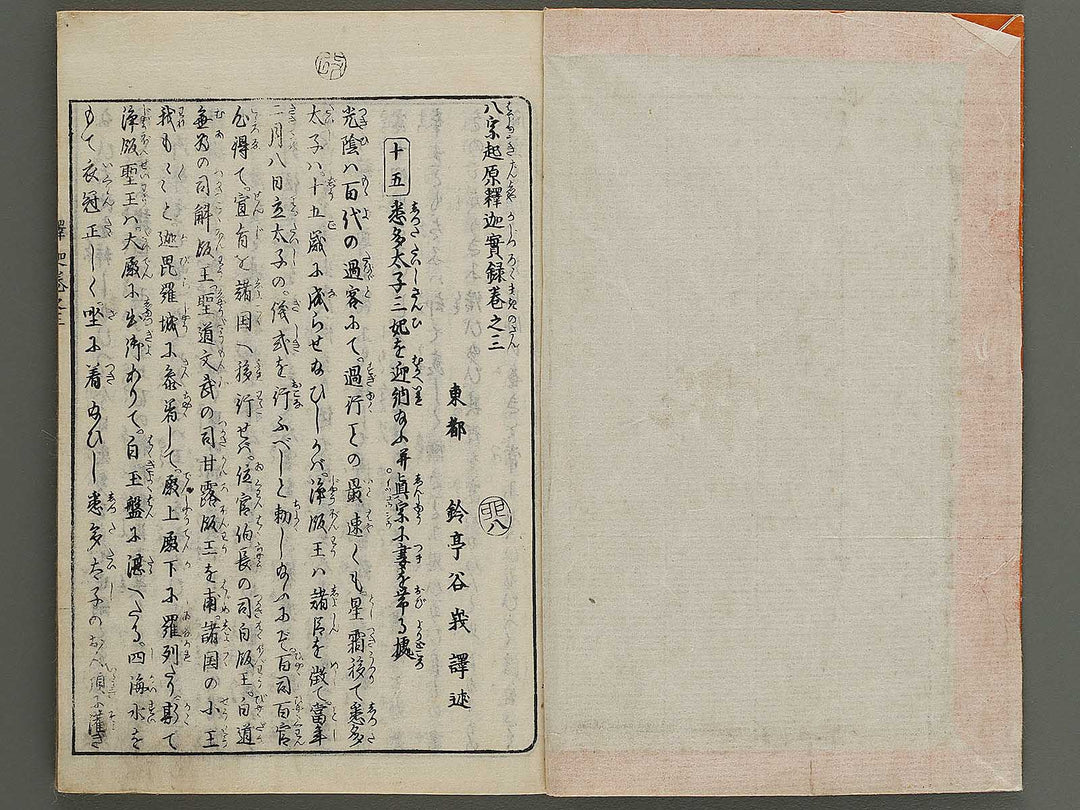 八宗起原釋迦實録卷之三
東都　鈴亭谷峩譯述
十五　悉多太子三妃を迎納給ふ并眞宗に妻を帯る據
光陰ハ百代の過客にて。過行ことの最速くも。星霜移て悉多
太子ハ。十五歳に成らせ給ひしかバ。淨飯王ハ諸臣を徴て。當年
二月八日立太子の。儀式を行ふべしと勅し給ふにぞ。百司百官
心得て。宣旨を諸国へ移行せバ。位官伯長の司白飯王。白道
無為の司解飯王。聖道文武の司甘露飯王を甫。諸国の小王
我も〳〵と迦毘羅城に參着して。殿上殿下に羅列たり。斯て
淨飯聖王ハ。大殿に出御ありて。白玉盤に湛へたる。四海水を
もて衣冠正しく。坐に着給ひし悉多太子の
釋迦卷之三